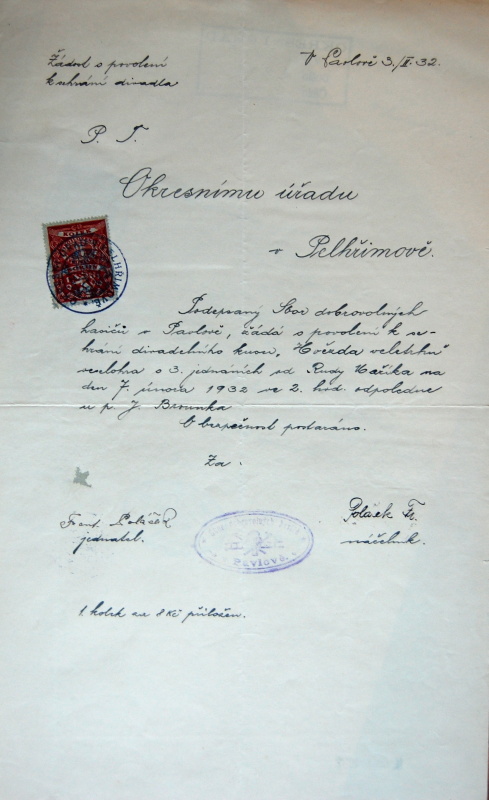 V Pavlově 3./II. 32.
Žádost s povolení
k sehrání divadla
P. T.
Okresnímu úřadu
v Pelhřimově.
Podepsaný Sbor dobrovolných
hasičů v Pavlově, žádá s povolení k se-
hrání divadelního kusu, "Hvězda veletrhu"
veselohra o 3. jednáních od Rudy Maříka na
den 7. února 1932 ve 2. hod. odpoledne
u p. J. Brounka
O bezpečnost postaráno.
Za:
Frant. Poláček
jednatel.
Polásek Fr.
náčelník.
Pavlově.
1 kolek za 8 Kč přiložen.